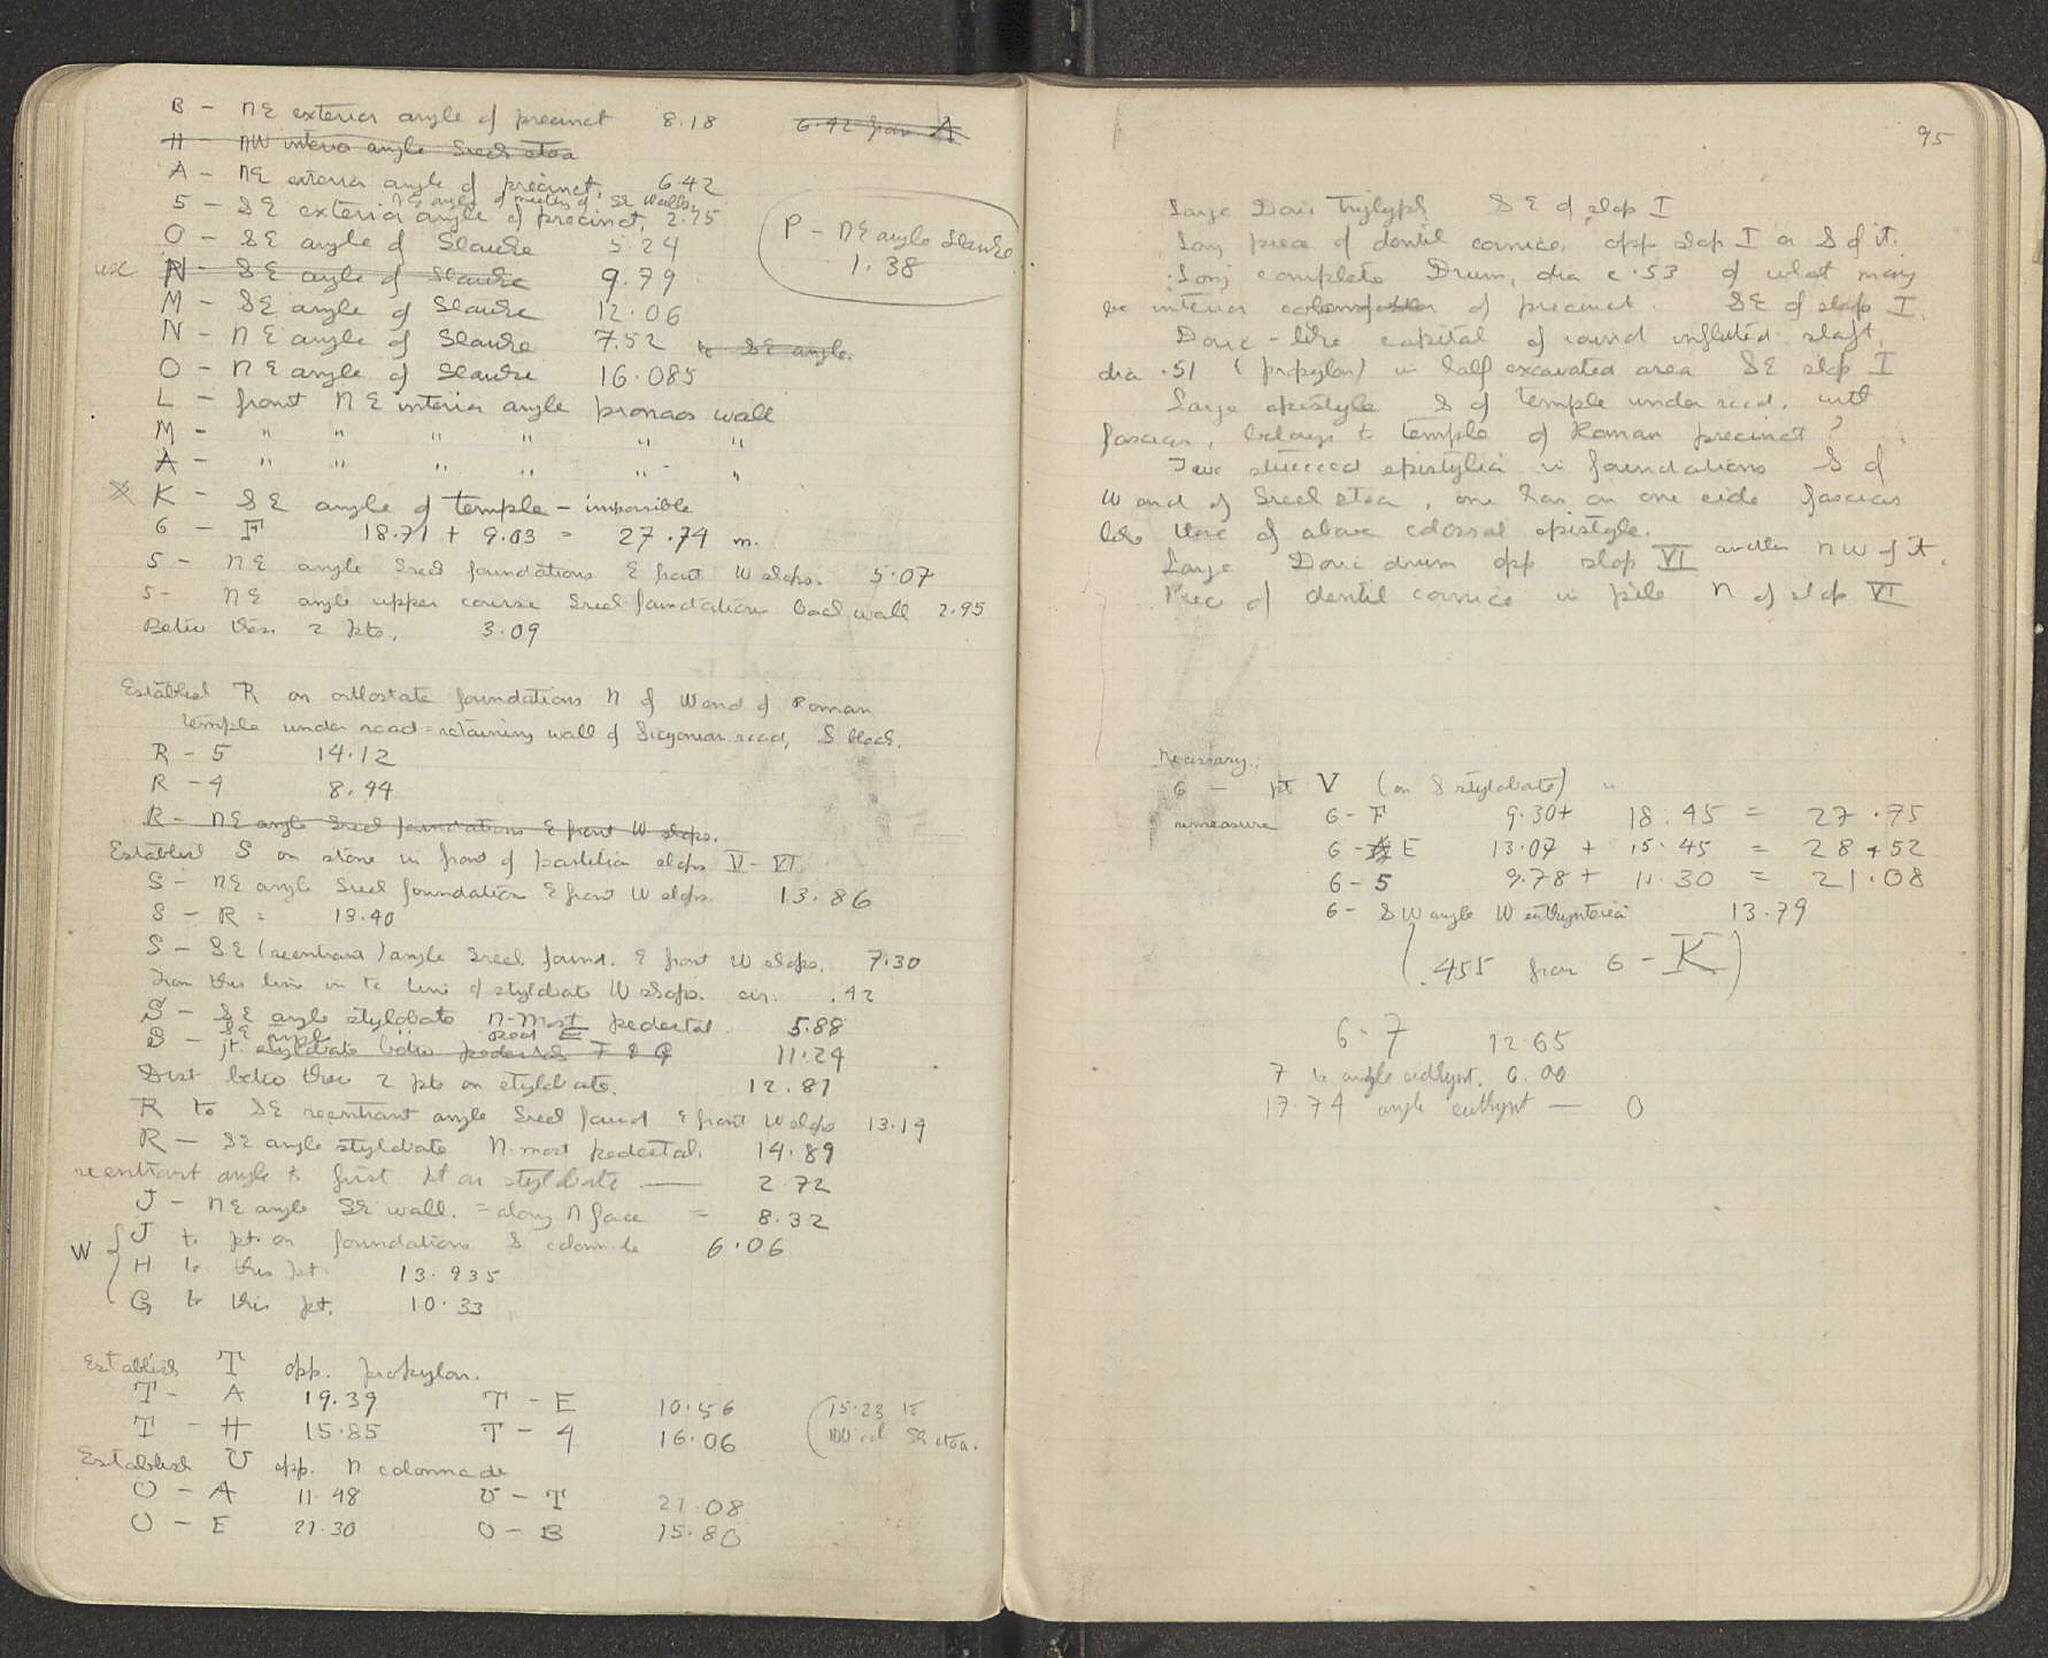 B - NE exterior angle of precinct 8.18 6.42 from A
H - NW interior angle Greek stoa
A - NE exterior angle of precinct, 6.42
NE angle of meeting of SE walls
5 - SE exterior angle of precinct, 2.75
O - SE angle of Glauke 5.24
P - NE angle Glauke
1.38
use N - SE angle of Glauke 9.79
M - SE angle of Glauke 12.06
N - NE angle of Glauke 7.52 to SE angle.
O - NE angle of Glauke 16.085
L - front NE interior angle pronaos wall
M - " " " " " "
A - " " " " " "
K - SE angle of temple - impossible
6 - F 18.71 + 9.03 = 27.74 m.
5 - NE angle Greek foundations E front W shops. 5.07
5 - NE angle upper course Greek foundation back wall 2.95
Betw these 2 pts, 3.09
Establish R on orthostate foundations N of W end of Roman
temple under road = retaining wall of Sicyonian road, S block.
R - 5 14.12
R - 4 8.44
R - NE angle Greek foundations E front W shops.
Establish S on stone in front of partition shops V - VI.
S - NE angle Greek foundation E front W shops. 13.86
S - R = 13.40
S - SE (reentrant) angle Greek found. E front W shops. 7.30
From this line in to line of stylobate W shops. cir. .42
S - SE angle stylobate N-most pedestal 5.88
SE angle ped E
B - pt. stylobate betw pedestals F & G 11.24
Dist betw these 2 pts on stylobate. 12.81
R to SE reentrant angle Greek found E front W shops 13.19
R - SE angle stylobate N. most pedestal. 14.89
reentrant angle to first pt on stylobate — 2.72
J - NE angle SE wall. = along N face = 8.32
W J to pt. on foundations S colonnade 6.06
H to this pt 13.935
G to this pt. 10.33
Establish T opp. propylon.
T - A 19.39 T - E 10.56 (15.23 to
T - H 15.85 T - 4 16.06
Establish U opp. N colonnade
U - A 11.48 U - T 21.08
U - E 21.30 U - B 15.80
95
Large Doric triglyph SE of shop I
Long piece of dentil cornice, opp shop I on S of it.
Long complete Drum, dia c .53 of what may
be interior colonnade of precinct. SE of shop I.
Doric-like capital of round unfluted shaft,
dia .51 (propylon) in half excavated area SE shop I
Large epistyle S of temple under road, with
fascias, belongs to temple of Roman precinct?
Two stuccoed epistylia in foundations S of
W end of Greek stoa, one has on one side fascias
like those of above colossal epistyle.
Large Doric drum opp shop VI another NW of it.
Piece of dentil cornice in pile N of shop VI
Necessary:
6 - pt V (on S stylobate)
remeasure 6 - F 9.30 + 18.45 = 27.75
6 - E 13.07 + 15.45 = 28.52
6 - 5 9.78 + 11.30 = 21.08
6 - SW angle W euthynteria 13.79
(.455 from 6 - K)
6 - 7 12.65
7 to angle euthynt. 6.00
17.74 angle euthynt — O